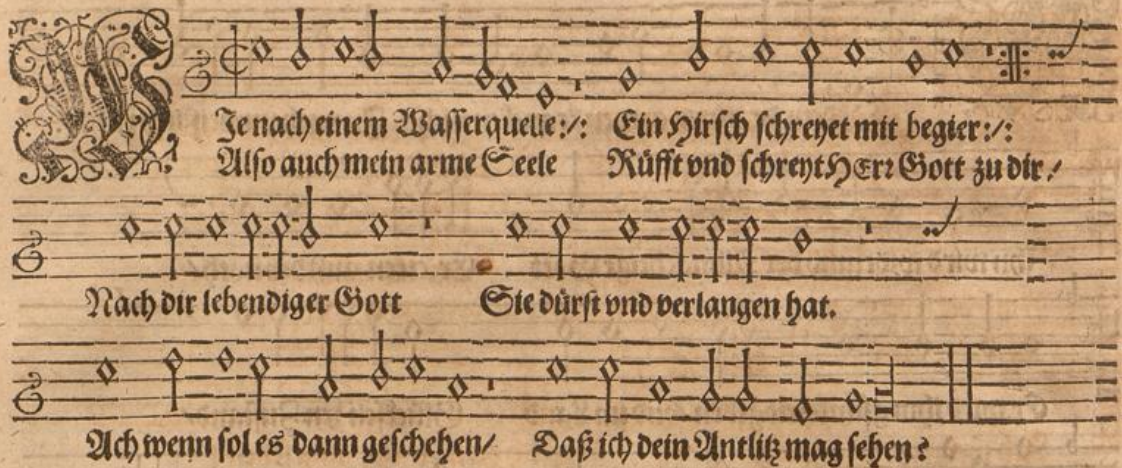 WJe nach einem Wasserquelle :/: Ein Hirsch schreyet mit begier :/:
Also auch mein arme Seele Rüfft vnd schreyt HErr Gott zu dir /
Nach dir lebendiger Gott Sie dürst vnd verlangen hat.
Ach wenn sol es dann geschehen / Daß ich dein Antlitz mag sehen ?